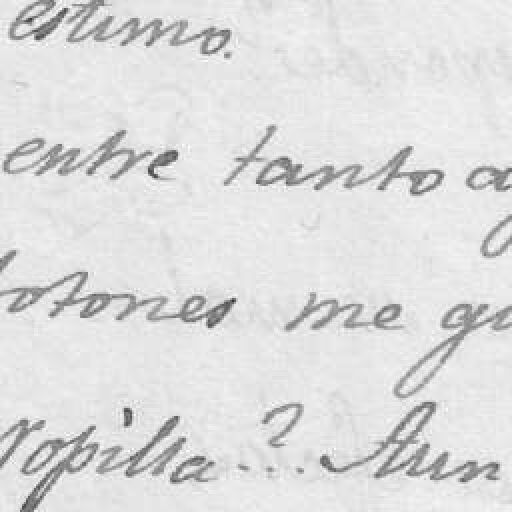 estimo.
entre tanto
botones me gu
Nopilla?... Aun